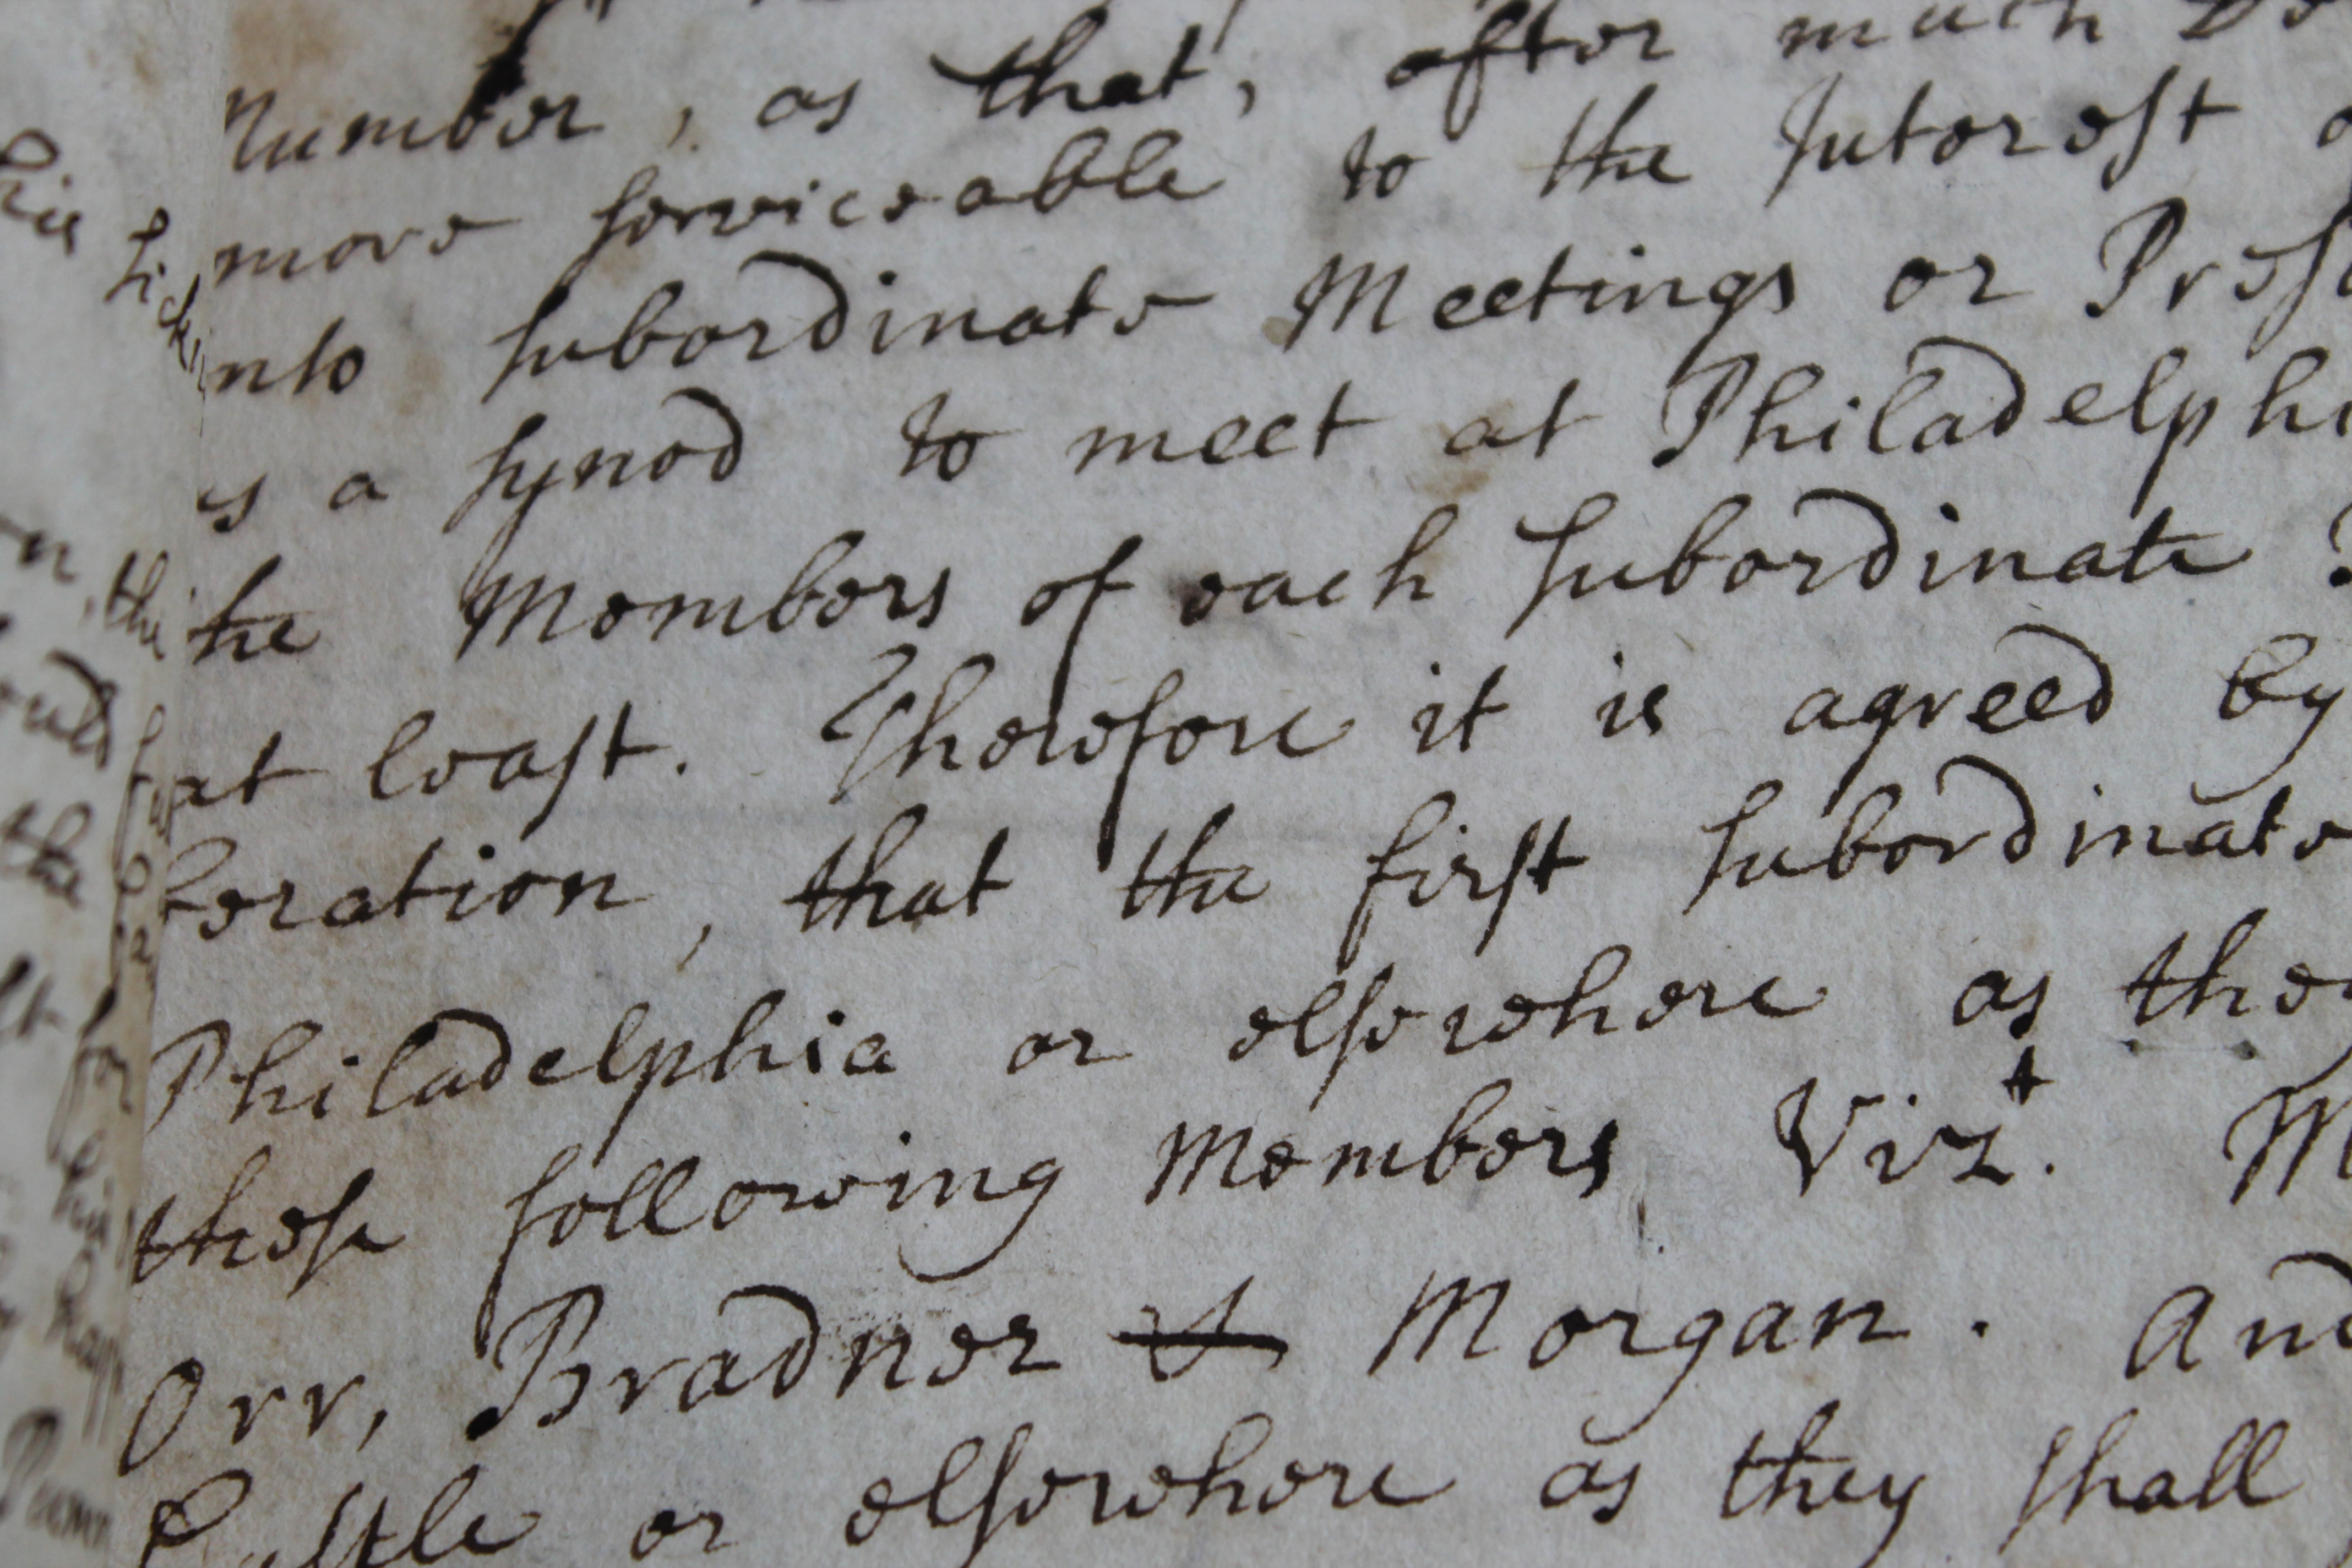 Number, as that, after much
more serviceable to the Interest
nto subordinate Meetings or Pres
s a Synod to meet at Philadelphi
the Members of each subordinate
at least. Therefore it is agreed by
beration, that the first subordinate
Philadelphia or elsewhere as they
these following Members Vizt. M
Orr, Bradner & Morgan. And
Castle or elsewhere as they shall